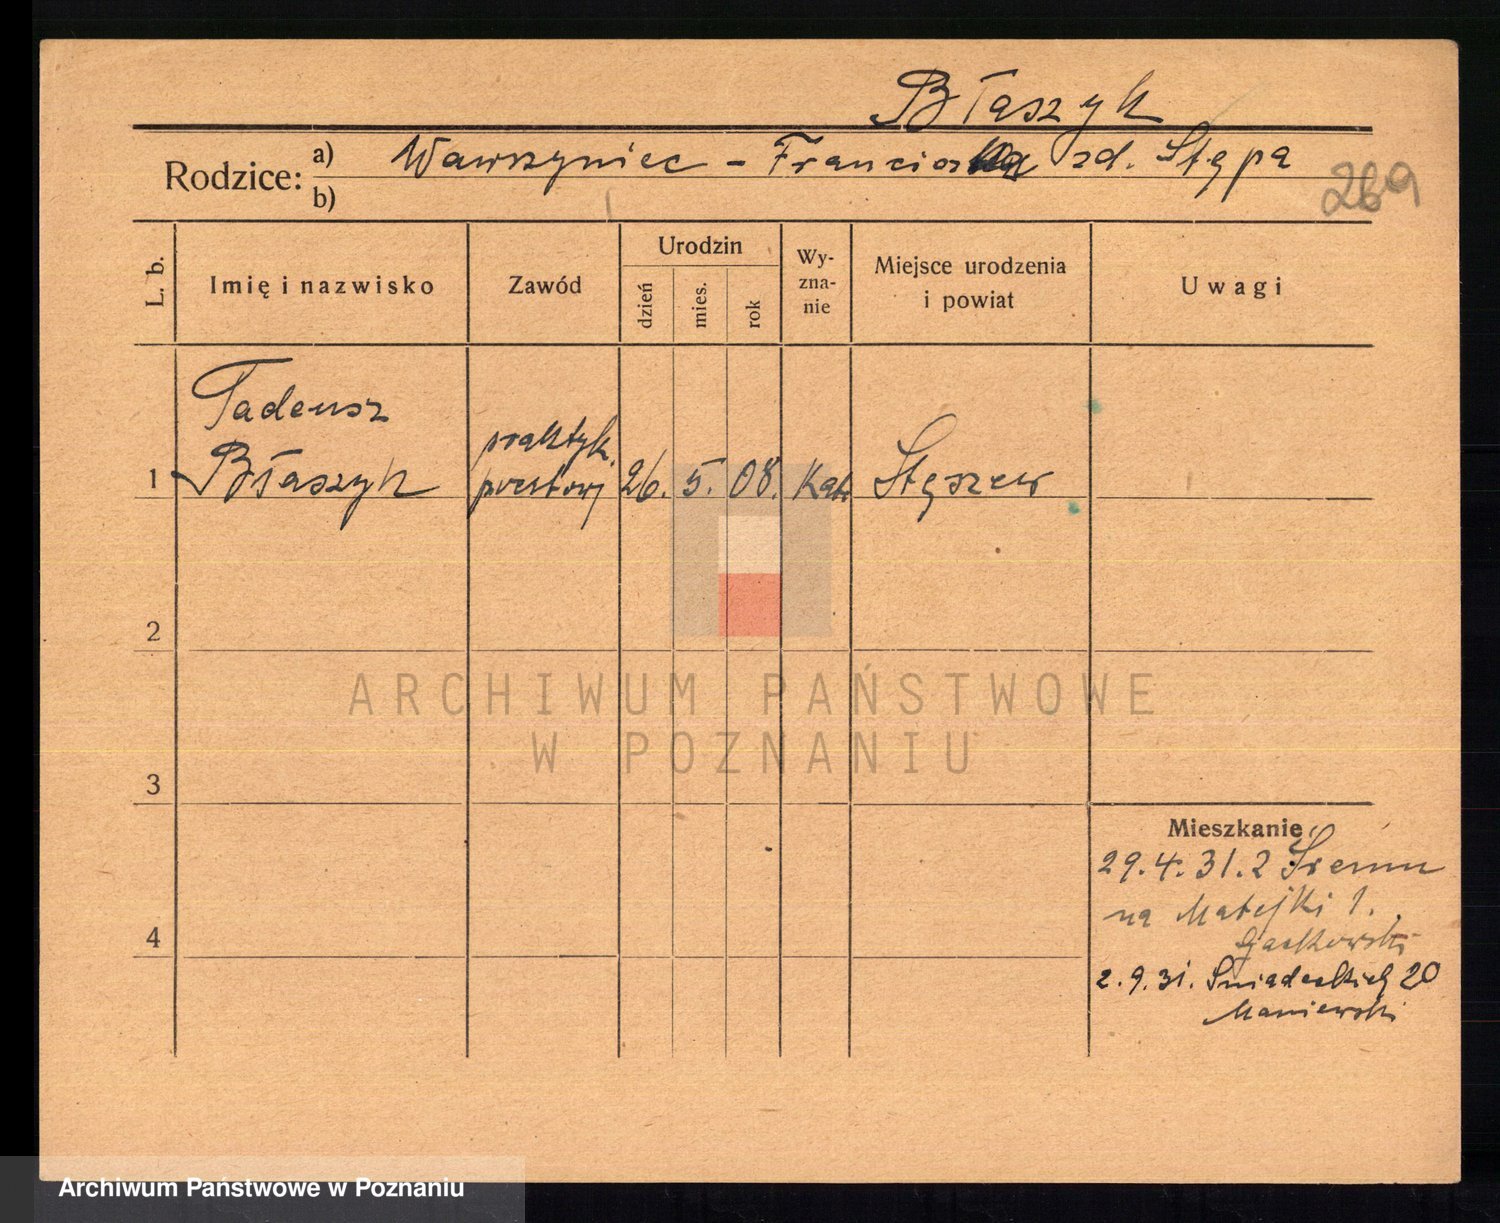 Błaszyk
Rodzice: a) Wawrzyniec - Franciszka zd. Stępa
b)
269
L. b. Imię i nazwisko Zawód Urodzin dzień mies. rok Wy-zna-nie Miejsce urodzenia i powiat Uwagi
Tadeusz
praktyk.
1 Błaszyk pocztowy 26. 5. 08. Kat. Stęszew
2
ARCHIWUM PAŃSTWOWE
W POZNANIU
3
Mieszkanie
29.4.31. z Śremu
na Matejki 1.
4
2.9.31. Śniadeckich 20
Maniewski
Archiwum Państwowe w Poznaniu